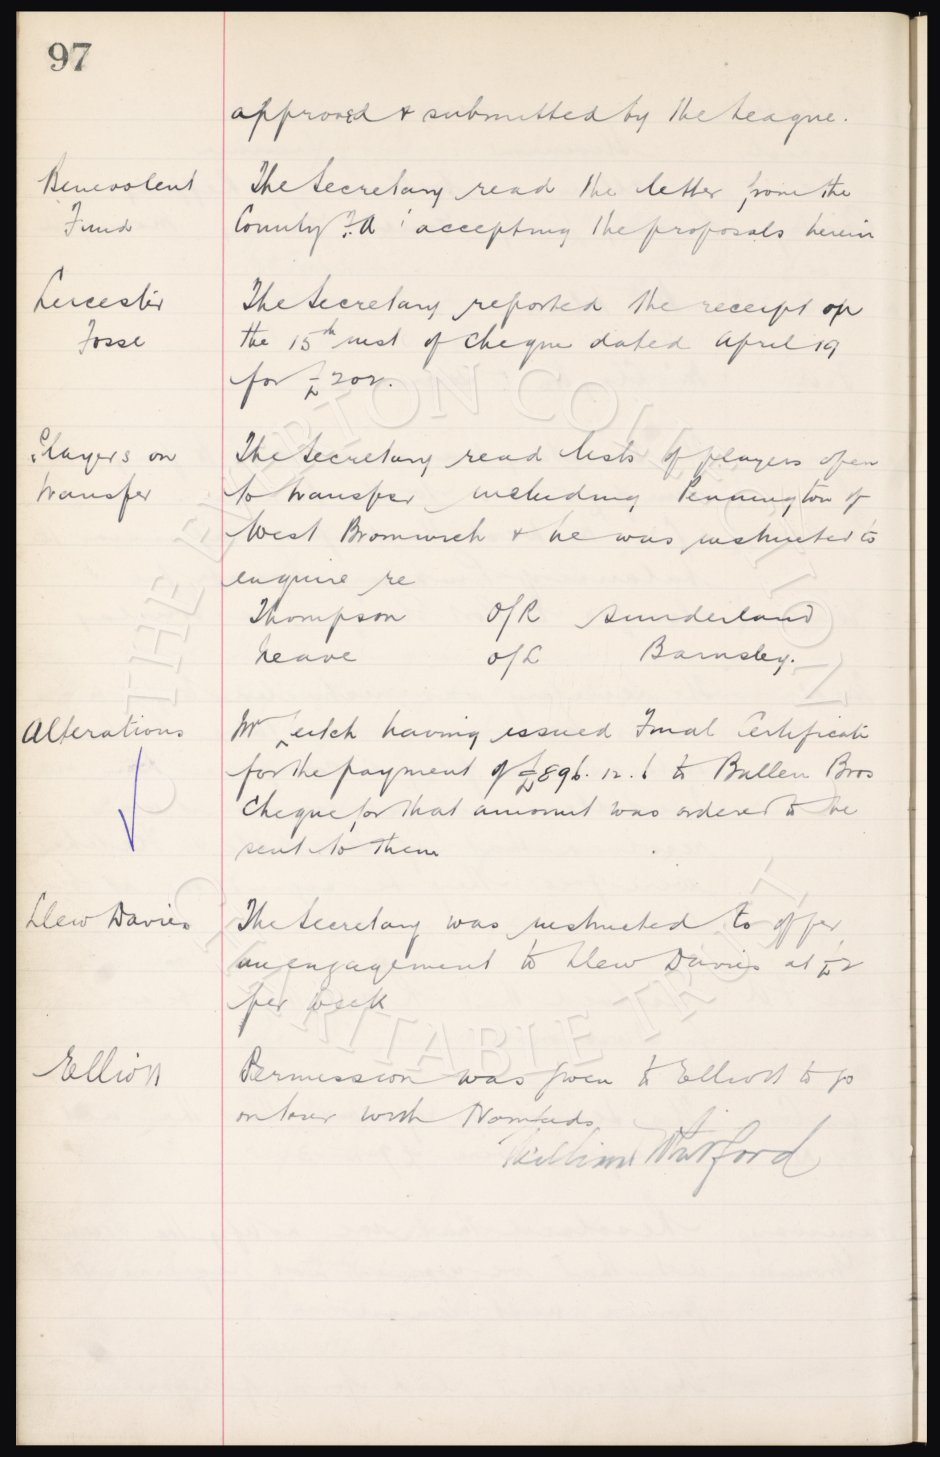 97
approved & submitted by the League.
Benevolent Fund
The Secretary read the letter from the
County F.A. accepting the proposals herein
Leicester Fosse
The Secretary reported the receipt of
the 15th inst of cheque dated April 19
for £202.
Players on transfer
The Secretary read lists of players open
to transfer including Pennington of
West Bromwich & he was instructed to
enquire re
Thompson O/R Sunderland
Neave O/L Barnsley.
Alterations
Mr Leitch having issued Final Certificate
for the payment of £896.12.6 to Bullen Bros
cheque for that amount was ordered to be
sent to them
Llew Davies
The Secretary was instructed to offer
an engagement to Llew Davies at £2
per week
Elliott
Permission was given to Elliott to go
on tour with Nomads
William Whitford
THE EVERTON COLLECTION
CHARITABLE TRUST